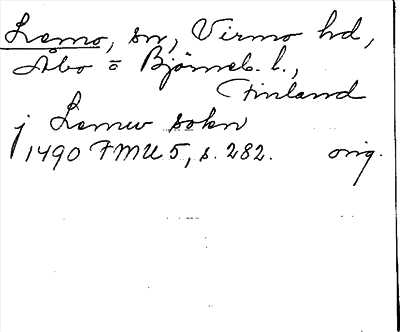 Lemo, sn, Virmo hd,
Åbo o Björneb. l.,
Finland
j Lemw sokn
1490 FMU 5, s. 282. orig.